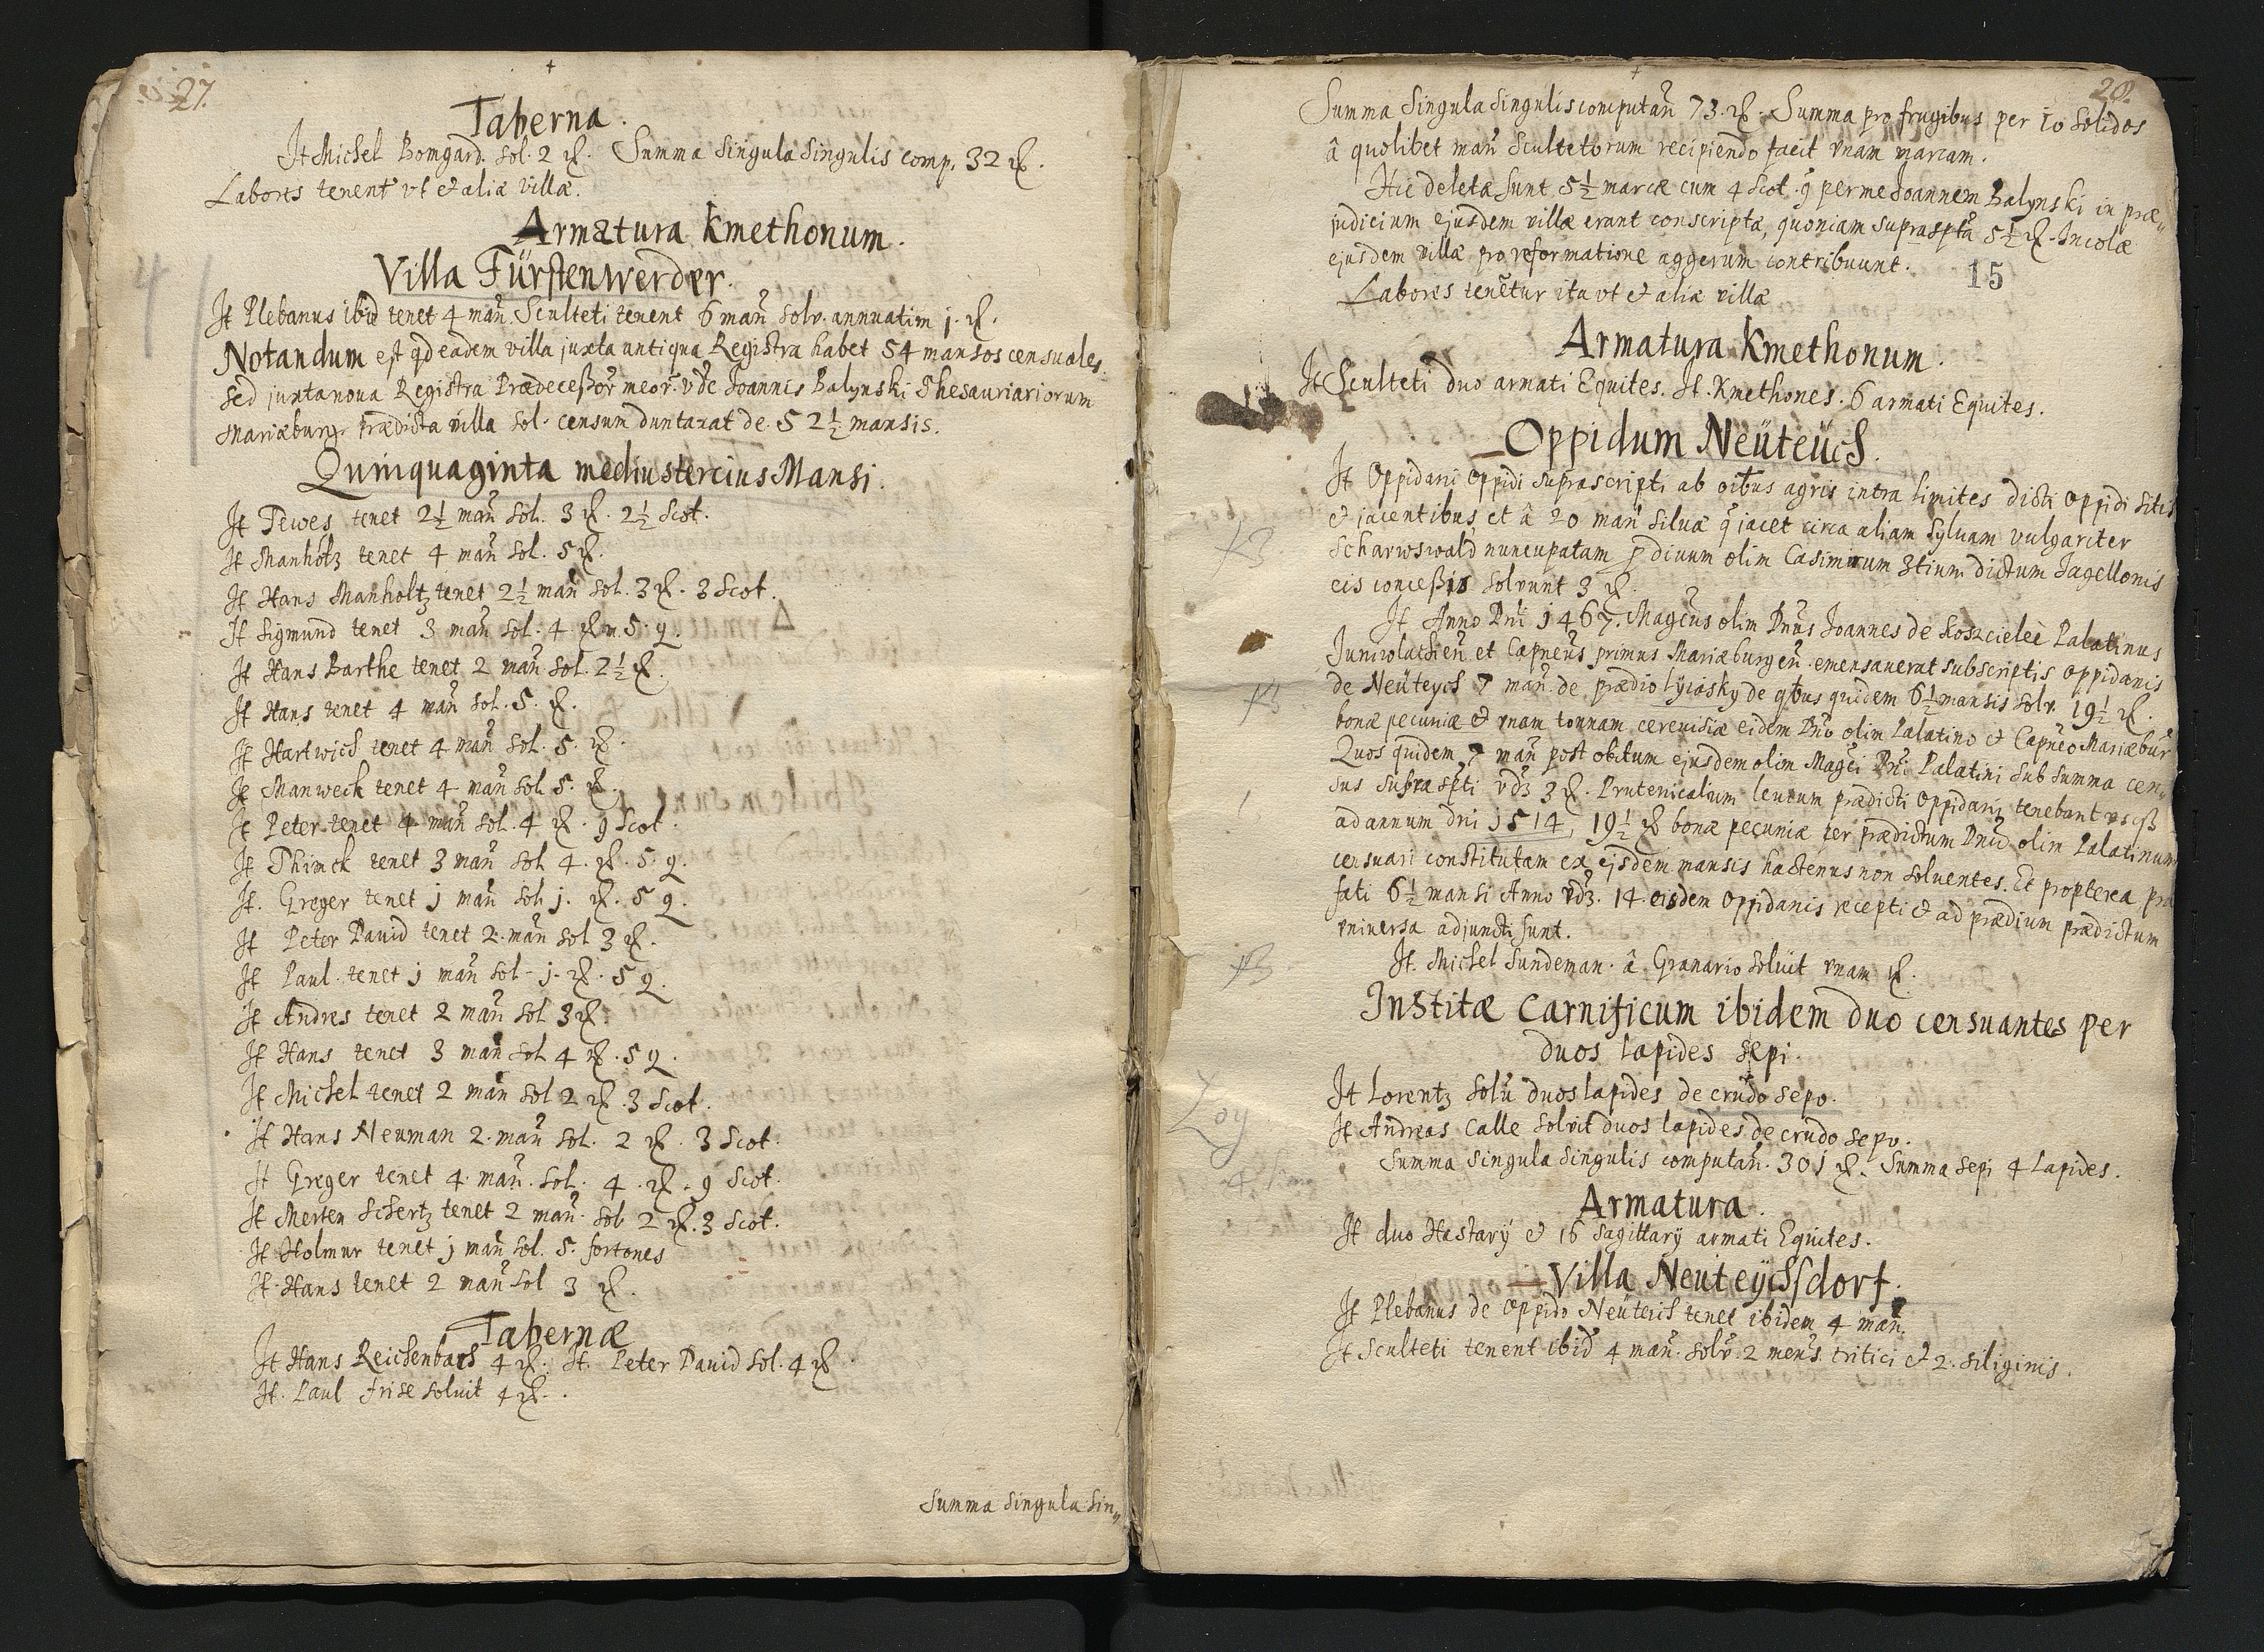 27.
Taberna.
It Michel Bomgard. sol. 2 ℳ. Summa singula singulis comp. 32 ℳ.
Labores tenent vt et aliæ villæ.
Armatura Kmethonum.
Villa Fürstenwerder.
It Plebanus ibid tenet 4 mañ. Sculteti tenent 6 mañ solv. annuatim j. ℳ.
Notandum est qd eadem villa juxta antiqua Registra habet 54 mansos censuales.
sed juxta noua Registra Prædecessor meor. vde Joannis Balynski Thesauriariorum
Mariæburg. prædicta villa sol. censum duntaxat de 52½ mansis.
Quinquaginta mediustercius Mansi.
It Tewes tenet 2½ mañ sol. 3 ℳ. 2½ Scot.
It Manholtz tenet 4 mañ sol. 5 ℳ.
It Hans Manholtz tenet 2½ mañ sol. 3 ℳ. 3 Scot.
It Sigmund tenet 3 mañ sol. 4 ℳ m. 5. q.
It Hans Barthe tenet 2 mañ sol. 2½ ℳ.
It Hans tenet 4 mañ sol. 5. ℳ.
It Hartwich tenet 4 mañ sol. 5. ℳ.
It Manweck tenet 4 mañ sol. 5. ℳ.
It Peter tenet 4 mañ sol. 4 ℳ. 9 Scot.
It Thimck tenet 3 mañ sol 4. ℳ. 5. q.
It. Greger tenet j mañ sol j. ℳ. 5 q.
It Peter Dauid tenet 2. mañ sol 3 ℳ.
It Paul. tenet j mañ sol - j. ℳ. 5 q.
It Andres tenet 2 mañ sol 3 ℳ.
It Hans tenet 3 mañ sol 4 ℳ. 5 q.
It Michel tenet 2 mañ sol 2 ℳ. 3 Scot.
It Hans Neuman 2. mañ sol. 2 ℳ. 3 Scot.
It Greger tenet 4. mañ. sol. 4. ℳ. 9 Scot.
It Merten Schertz tenet 2 mañ. sol 2 ℳ. 3 Scot.
It Holmur tenet j mañ sol. 5. fortones
It. Hans tenet 2 mañ sol 3 ℳ.
Tabernæ
It Hans Reichenbach 4 ℳ. It. Peter Dauid sol. 4 ℳ
It. Paul Frise soluit 4 ℳ.
Summa singula sin,,
28.
Summa singula singulis computañ 73. ℳ. Summa pro frugibus per 10 solidos
â quolibet mañ Scultetorum recipiendo facit vnam marcam.
Hic deletæ sunt 5½ marcæ cum 4 Scot. q per me Joannem Balynski in præ,,
judicium ejusdem villæ erant conscriptæ, quoniam suprasptã 5½ ℳ. Incolæ
ejusdem villæ pro reformatione aggerum contribuunt.
15
Labores tenẽtur ita vt et aliæ villæ
Armatura Kmethonum.
It Sculteti duo armati Equites. It. Kmethones. 6 armati Equites.
Oppidum Neüteüch.
It Oppidani Oppidi suprascripti ab oĩbus agris intra limites dicti Oppidi sitis
et jacentibus et â 20 mañ siluæ q jacet circa aliam syluam vulgariter
Scharwswald nuncupatam p diuum olim Casimirum 3tium dictum Jagellonis
eis concessis soluunt 3 ℳ.
It Anno Dni 1467. Magcus olim Dnus Joannes de Koszcielec Palatinus
Juniwladien et Capneus primus Mariæburgen. emensauerat subscriptis oppidanis
de Neüteych 7 mañ. de prædio lÿiosky de qbus quidem 6½ mansis solv. 19½ ℳ.
bonæ pecuniæ et vnam tonnam cereuisiæ eidem Dno olim Palatino et Capneo Mariæbur
Quos quidem 7 mañ post obitum ejusdem olim Magci Dni Palatini sub summa cen,,
sus suprasṗti vdz 3 ℳ. Prutenicalium leuium prædicti Oppidani tenebant vsq
ad annum dni 1514, 19½ ℳ bonæ pecuniæ per prædictum Dnu olim Palatinum
censuari constitutam ex ejsdem mansis hactenus non soluentes. Et propterea præ
fati 6½ mansi Anno vdz. 14. eisdem Oppidanis recepti et ad prædium prædictum
vniuersa adjuncti sunt.
It. Michel Sundeman. â Granario soluit vnam ℳ.
Institæ Carnificum ibidem duo censuantes per
duos lapides sepi.
It Lorentz solu duos lapides de crudo sepo.
It Andreas Calle soluit duos lapides de crudo sepo.
Summa singula singulis computañ. 301 ℳ. Summa sepi 4 Lapides.
Armatura.
It duo Hastarÿ et 16 Sagittarÿ armati Equites.
Villa Neuteÿchsdorf.
It Plebanus de oppido Neüteich tenet ibidem 4 mañ.
It Sculteti tenent ibid 4 mañ. solv. 2 mens. tritici et 2. siliginis.